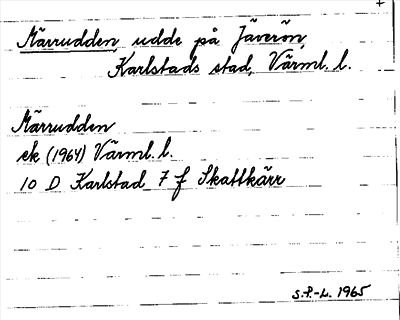 +
Märrudden, udde på Jäverön,
Karlstads stad, Värml. l.
Märrudden
ek (1964) Värml. l.
10 D Karlstad 7 f Skattkärr
S.P.-L. 1965